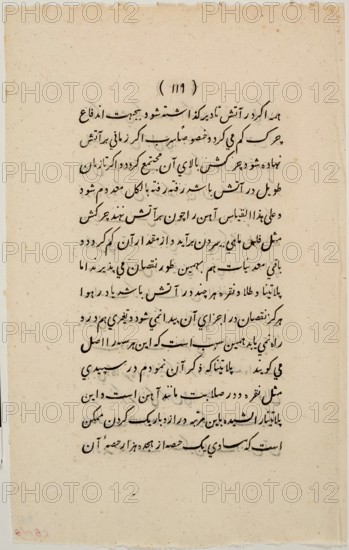 ( ١١٩ )
همه اکر در آتش تا دیر کذاشته شود بجهت اندفاع
چرک کم می کردد خصوصا سرب اکر زمانی بر آتش
نهاده شود چرکش بالای آن مجتمع کردد و اکر تا زمان
طویل در آتش باشد رفته رفته بالکل معدوم شود
و علی هذا القیاس آهن را چون بر آتش نهند چرکش
مثل فلس ماهی بیرون برآید و از مقدار آن کم کردد و
باقی معدنیات هم بهمین طور نقصان می پذیرند اما
پلاتینا و طلا و نقره هر چند در آتش باشد یا در هوا
هرکز نقصان در اجزای آن پیدا نمی شود و تغیری هم درو
راه نمی یابد همین سبب است که این هر سه را اصل
می کویند پلاتینا که ذکر آن نمودم در سپیدی
مثل نقره و در صلابت مانند آهن است و این
پلاتینا را کشیده باین مرتبه دراز و باریک کردن ممکن
است که مساوی یک حصه از هجده هزار حصهٔ آن
PHOTO12